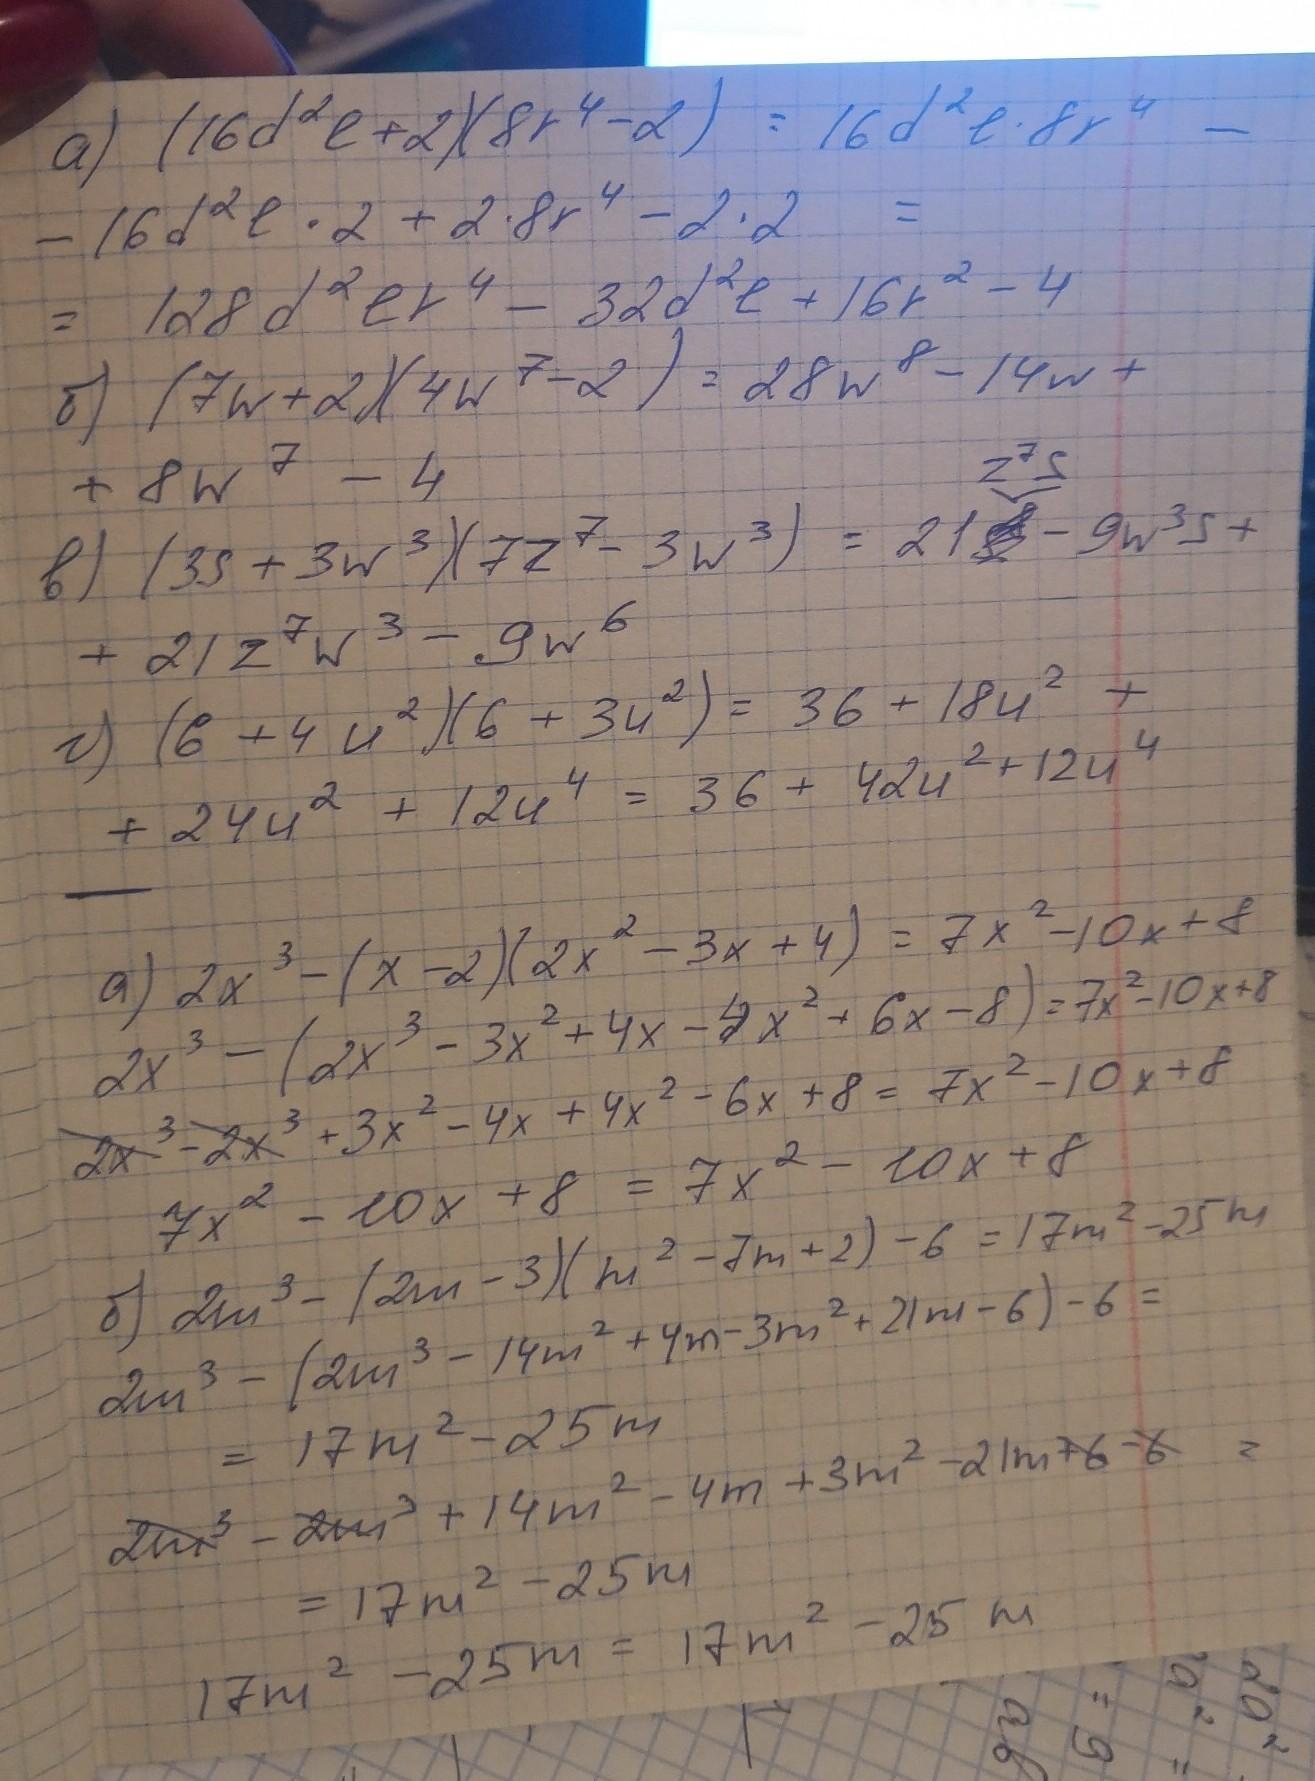 а) (16d²l+2)(8r⁴-2) = 16d²l·8r⁴ –
– 16d²l·2 + 2·8r⁴ – 2·2 =
= 128d²lr⁴ – 32d²l + 16r² – 4
б) (7w+2)(4w⁷-2) = 28w⁸ – 14w +
+ 8w⁷ – 4
z⁷s
в) (3s + 3w³)(7z⁷ – 3w³) = 21 – 9w³s +
+ 21z⁷w³ – 9w⁶
г) (6 + 4u²)(6 + 3u²) = 36 + 18u² +
+ 24u² + 12u⁴ = 36 + 42u² + 12u⁴
а) 2x³ – (x – 2)(2x² – 3x + 4) = 7x² – 10x + 8
2x³ – (2x³ – 3x² + 4x – 4x² + 6x – 8) = 7x² – 10x + 8
2x³ – 2x³ + 3x² – 4x + 4x² – 6x + 8 = 7x² – 10x + 8
7x² – 10x + 8 = 7x² – 10x + 8
б) 2m³ – (2m – 3)(m² – 7m + 2) – 6 = 17m² – 25m
2m³ – (2m³ – 14m² + 4m – 3m² + 21m – 6) – 6 =
= 17m² – 25m
2m³ – 2m³ + 14m² – 4m + 3m² – 21m + 6 – 6 =
= 17m² – 25m
17m² – 25m = 17m² – 25m